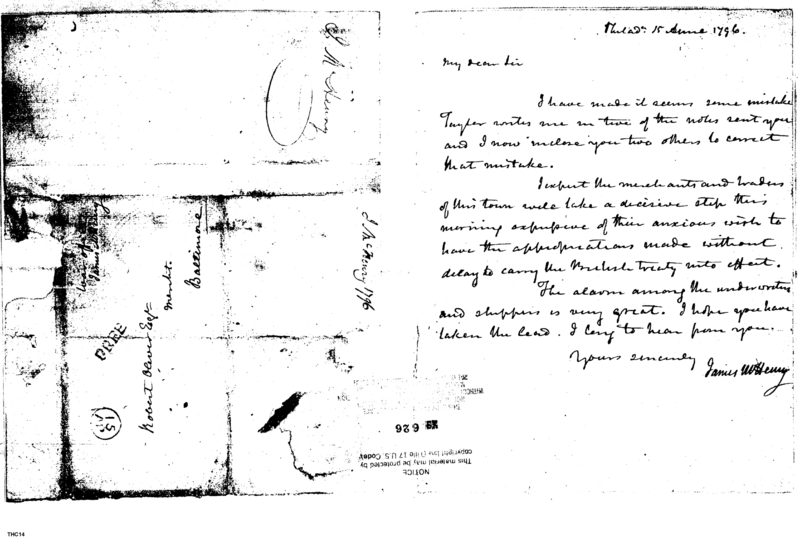 J McHenry
J McHenry 1796
James McHenry
FREE
15
Robert Oliver Esqr
Mercht.
Baltimore
Philada. 15 April 1796.
My dear Sir
I have made it seems some mistake
Taylor writes me in two of the notes sent you
and I now inclose you two others to correct
that mistake.
I expect the merchants and traders
of this town will take a decisive step this
morning expressive of their anxious wish to
have the appropriations made without
delay to carry the British treaty into effect.
The alarm among the underwriters
and shippers is very great. I hope you have
taken the lead. I long to hear from you.
Yours sincerely
James McHenry
626
NOTICE
This material may be protected by
copyright law (Title 17 U.S. Code)
THC14